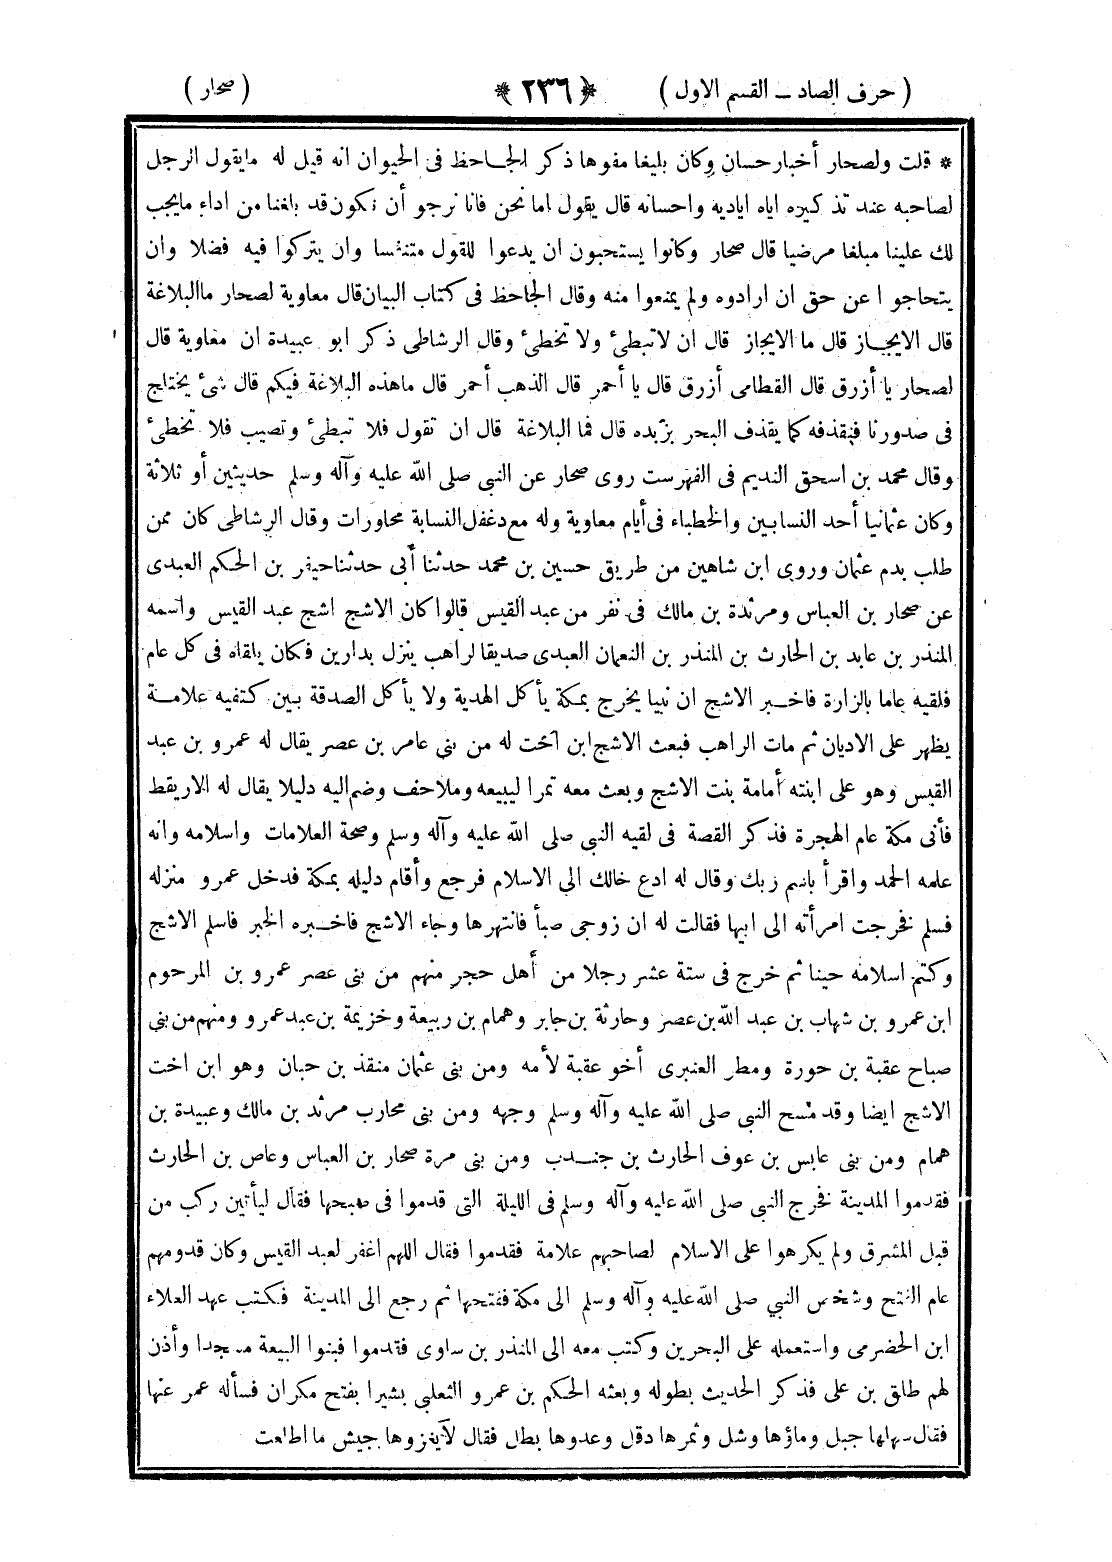 ( حرف الصاد ــ القسم الاول ) ﴿ ٢٣٦ ﴾ ( صحار )
* قلت ولصحار أخبار حسان وكان بليغا مفوها ذكر الجاحظ فى الحيوان انه قيل له مايقول الرجل
لصاحبه عند تذكيره اياه اياديه واحسانه قال يقول اما نحن فانا نرجو أن نكون قد بلغنا من اداء مايجب
لك علينا مبلغا مرضيا قال صحار وكانوا يستحبون ان يدعوا للقول متنفسا وان يتركوا فيه فضلا وان
يتحاجوا عن حق ان ارادوه ولم يمنعوا منه وقال الجاحظ فى كتاب البيان قال معاوية لصحار ماالبلاغة
قال الايجاز قال ما الايجاز قال ان لاتبطئ ولا تخطئ وقال الرشاطى ذكر ابو عبيدة ان معاوية قال
لصحار يا أزرق قال القطامى أزرق قال يا أحمر قال الذهب أحمر قال ماهذه البلاغة فيكم قال شئ يختلج
فى صدورنا فنقذفه كما يقذف البحر بزبده قال فما البلاغة قال ان تقول فلا تبطئ وتصيب فلا تخطئ
وقال محمد بن اسحق النديم فى الفهرست روى صحار عن النبى صلى الله عليه وآله وسلم حديثين أو ثلاثة
وكان عثمانيا أحد النسابين والخطباء فى أيام معاوية وله مع دغفل النسابة محاورات وقال الرشاطى كان ممن
طلب بدم عثمان وروى ابن شاهين من طريق حسين بن محمد حدثنا أبى حدثنا جيفر بن الحكم العبدى
عن صحار بن العباس ومرثدة بن مالك فى نفر من عبد القيس قالوا كان الاشج اشج عبد القيس واسمه
المنذر بن عايد بن الحارث بن المنذر بن النعمان العبدى صديقا لراهب ينزل بدارين فكان يلقاه فى كل عام
فلقيه عاما بالزارة فاخبر الاشج ان نبيا يخرج بمكة يأكل الهدية ولا يأكل الصدقة بين كتفيه علامة
يظهر على الاديان ثم مات الراهب فبعث الاشج ابن أخت له من بنى عامر بن عصر يقال له عمرو بن عبد
القيس وهو على ابنته أمامة بنت الاشج وبعث معه تمرا ليبيعه وملاحف وضم اليه دليلا يقال له الاريقط
فأتى مكة عام الهجرة فذكر القصة فى لقيه النبى صلى الله عليه وآله وسلم وصحة العلامات واسلامه وانه
علمه الحمد واقرأ باسم ربك وقال له ادع خالك الى الاسلام فرجع وأقام دليله بمكة فدخل عمرو منزله
فسلم فخرجت امرأته الى ابيها فقالت له ان زوجى صبأ فانتهرها وجاء الاشج فاخبره الخبر فاسلم الاشج
وكتم اسلامه حينا ثم خرج فى ستة عشر رجلا من أهل حجر منهم من بنى عصر عمرو بن المرحوم
ابن عمرو بن شهاب بن عبد الله بن عصر وحارثة بن جابر وهمام بن ربيعة وخزيمة بن عبد عمرو ومنهم من بنى
صباح عقبة بن حورة ومطر العنبرى أخو عقبة لأمه ومن بنى عثمان منقذ بن حبان وهو ابن اخت
الاشج ايضا وقد مسح النبى صلى الله عليه وآله وسلم وجهه ومن بنى محارب مرثد بن مالك وعبيدة بن
همام ومن بنى عابس بن عوف الحارث بن جندب ومن بنى مرة صحار بن العباس وعاص بن الحارث
فقدموا المدينة فخرج النبى صلى الله عليه وآله وسلم فى الليلة التى قدموا فى صبحها فقال ليأتين ركب من
قبل المشرق ولم يكرهوا على الاسلام لصاحبهم علامة فقدموا فقال اللهم اغفر لعبد القيس وكان قدومهم
عام الفتح وشخص النبي صلى الله عليه وآله وسلم الى مكة ففتحها ثم رجع الى المدينة فكتب عهد العلاء
ابن الحضرمى واستعمله على البحرين وكتب معه الى المنذر بن ساوى فقدموا فبنوا البيعة مسجدا وأذن
لهم طلق بن على فذكر الحديث بطوله وبعثه الحكم بن عمرو الثعلبى بشيرا بفتح مكران فسأله عمر عنها
فقال سهلها جبل وماؤها وشل وثمرها دقل وعدوها بطل فقال لايغزوها جيش ما اطاعت